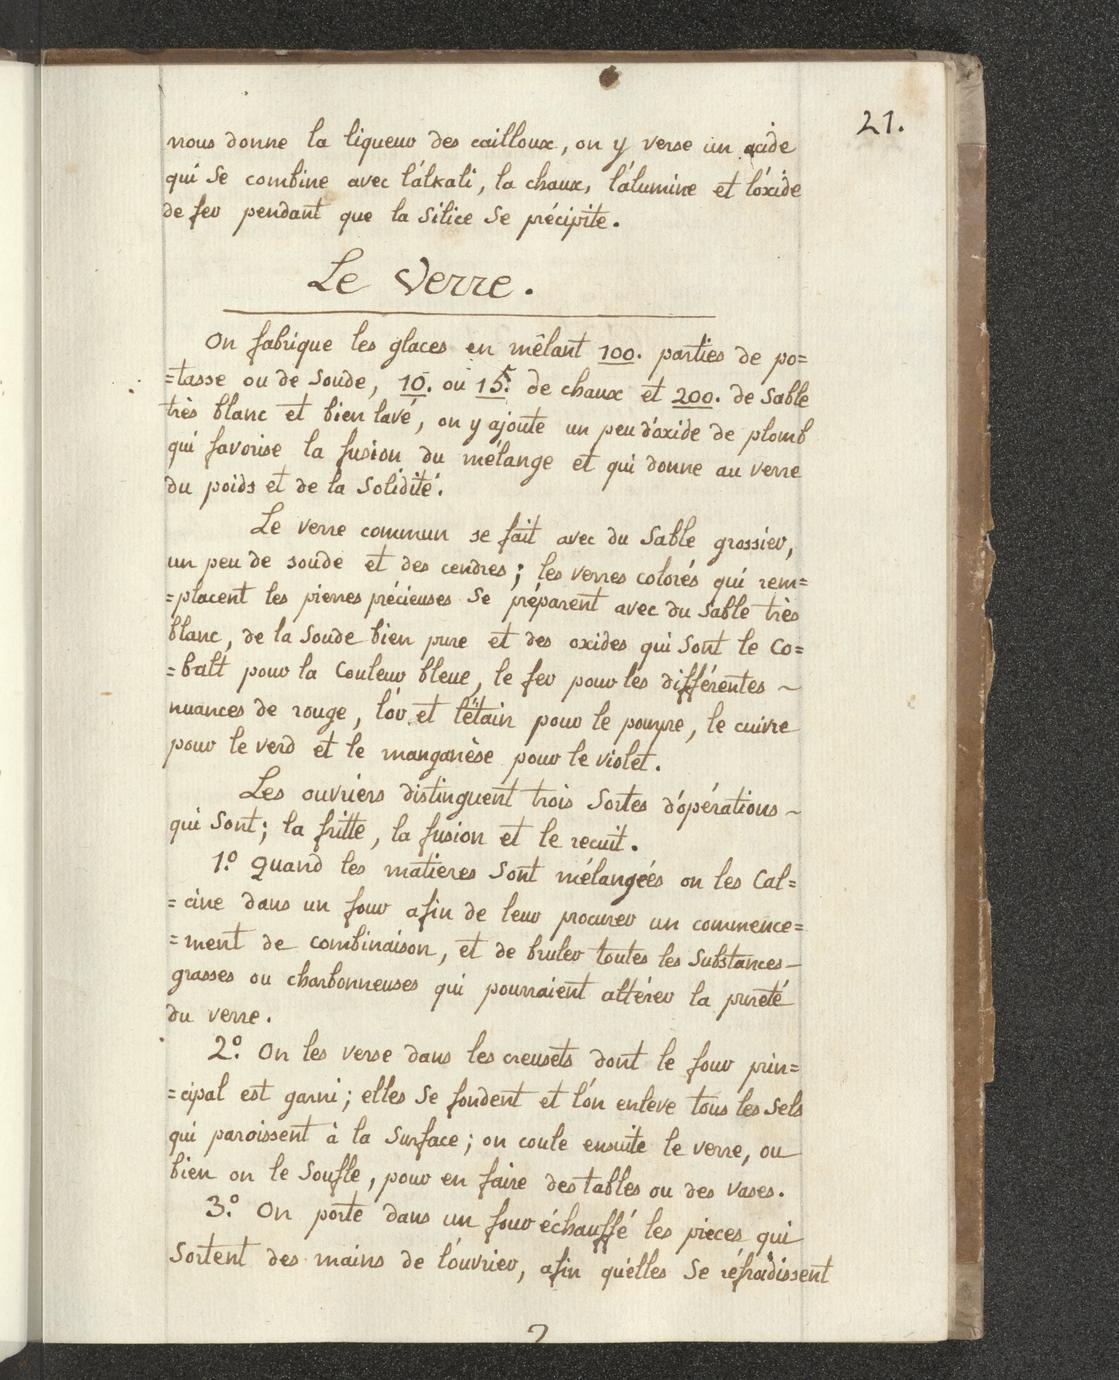 21.
nous donne la liqueur des cailloux, on y verse un acide
qui se combine avec l'alkali, la chaux, l'alumine et l'oxide
de fer pendant que la Silice se précipite.
Le Verre.
On fabrique les glaces en mêlant 100. parties de po=
=tasse ou de Soude, 10. ou 15. de chaux et 200. de Sable
très blanc et bien lavé, on y ajoute un peu d'oxide de plomb
qui favorise la fusion du mélange et qui donne au verre
du poids et de la Solidité.
Le verre commun se fait avec du Sable grossier,
un peu de soude et des cendres; les verres colorés qui rem=
=placent les pierres précieuses Se préparent avec du Sable très
blanc, de la Soude bien pure et des oxides qui Sont le Co=
=balt pour la Couleur bleue, le fer pour les différentes ~
nuances de rouge, l'or et l'étain pour le pourpre, le cuivre
pour le verd et le manganèse pour le violet.
Les ouvriers distinguent trois Sortes d'opérations ~
qui Sont; la fritte, la fusion et le recuit.
1.° Quand les matieres Sont mélangées on les Cal=
=cine dans un four afin de leur procurer un commence=
=ment de combinaison, et de bruler toutes les Substances—
grasses ou charbonneuses qui pourraient altérer la pureté
du verre.
2.° On les verse dans les creusets dont le four prin=
=cipal est garni; elles Se fondent et l'on enleve tous les Sels
qui paroissent à la Surface; on coule ensuite le verre, ou
bien on le Soufle, pour en faire des tables ou des vases.
3.° On porte dans un four échauffé les pieces qui
Sortent des mains de l'ouvrier, afin qu'elles Se réfroidissent
2